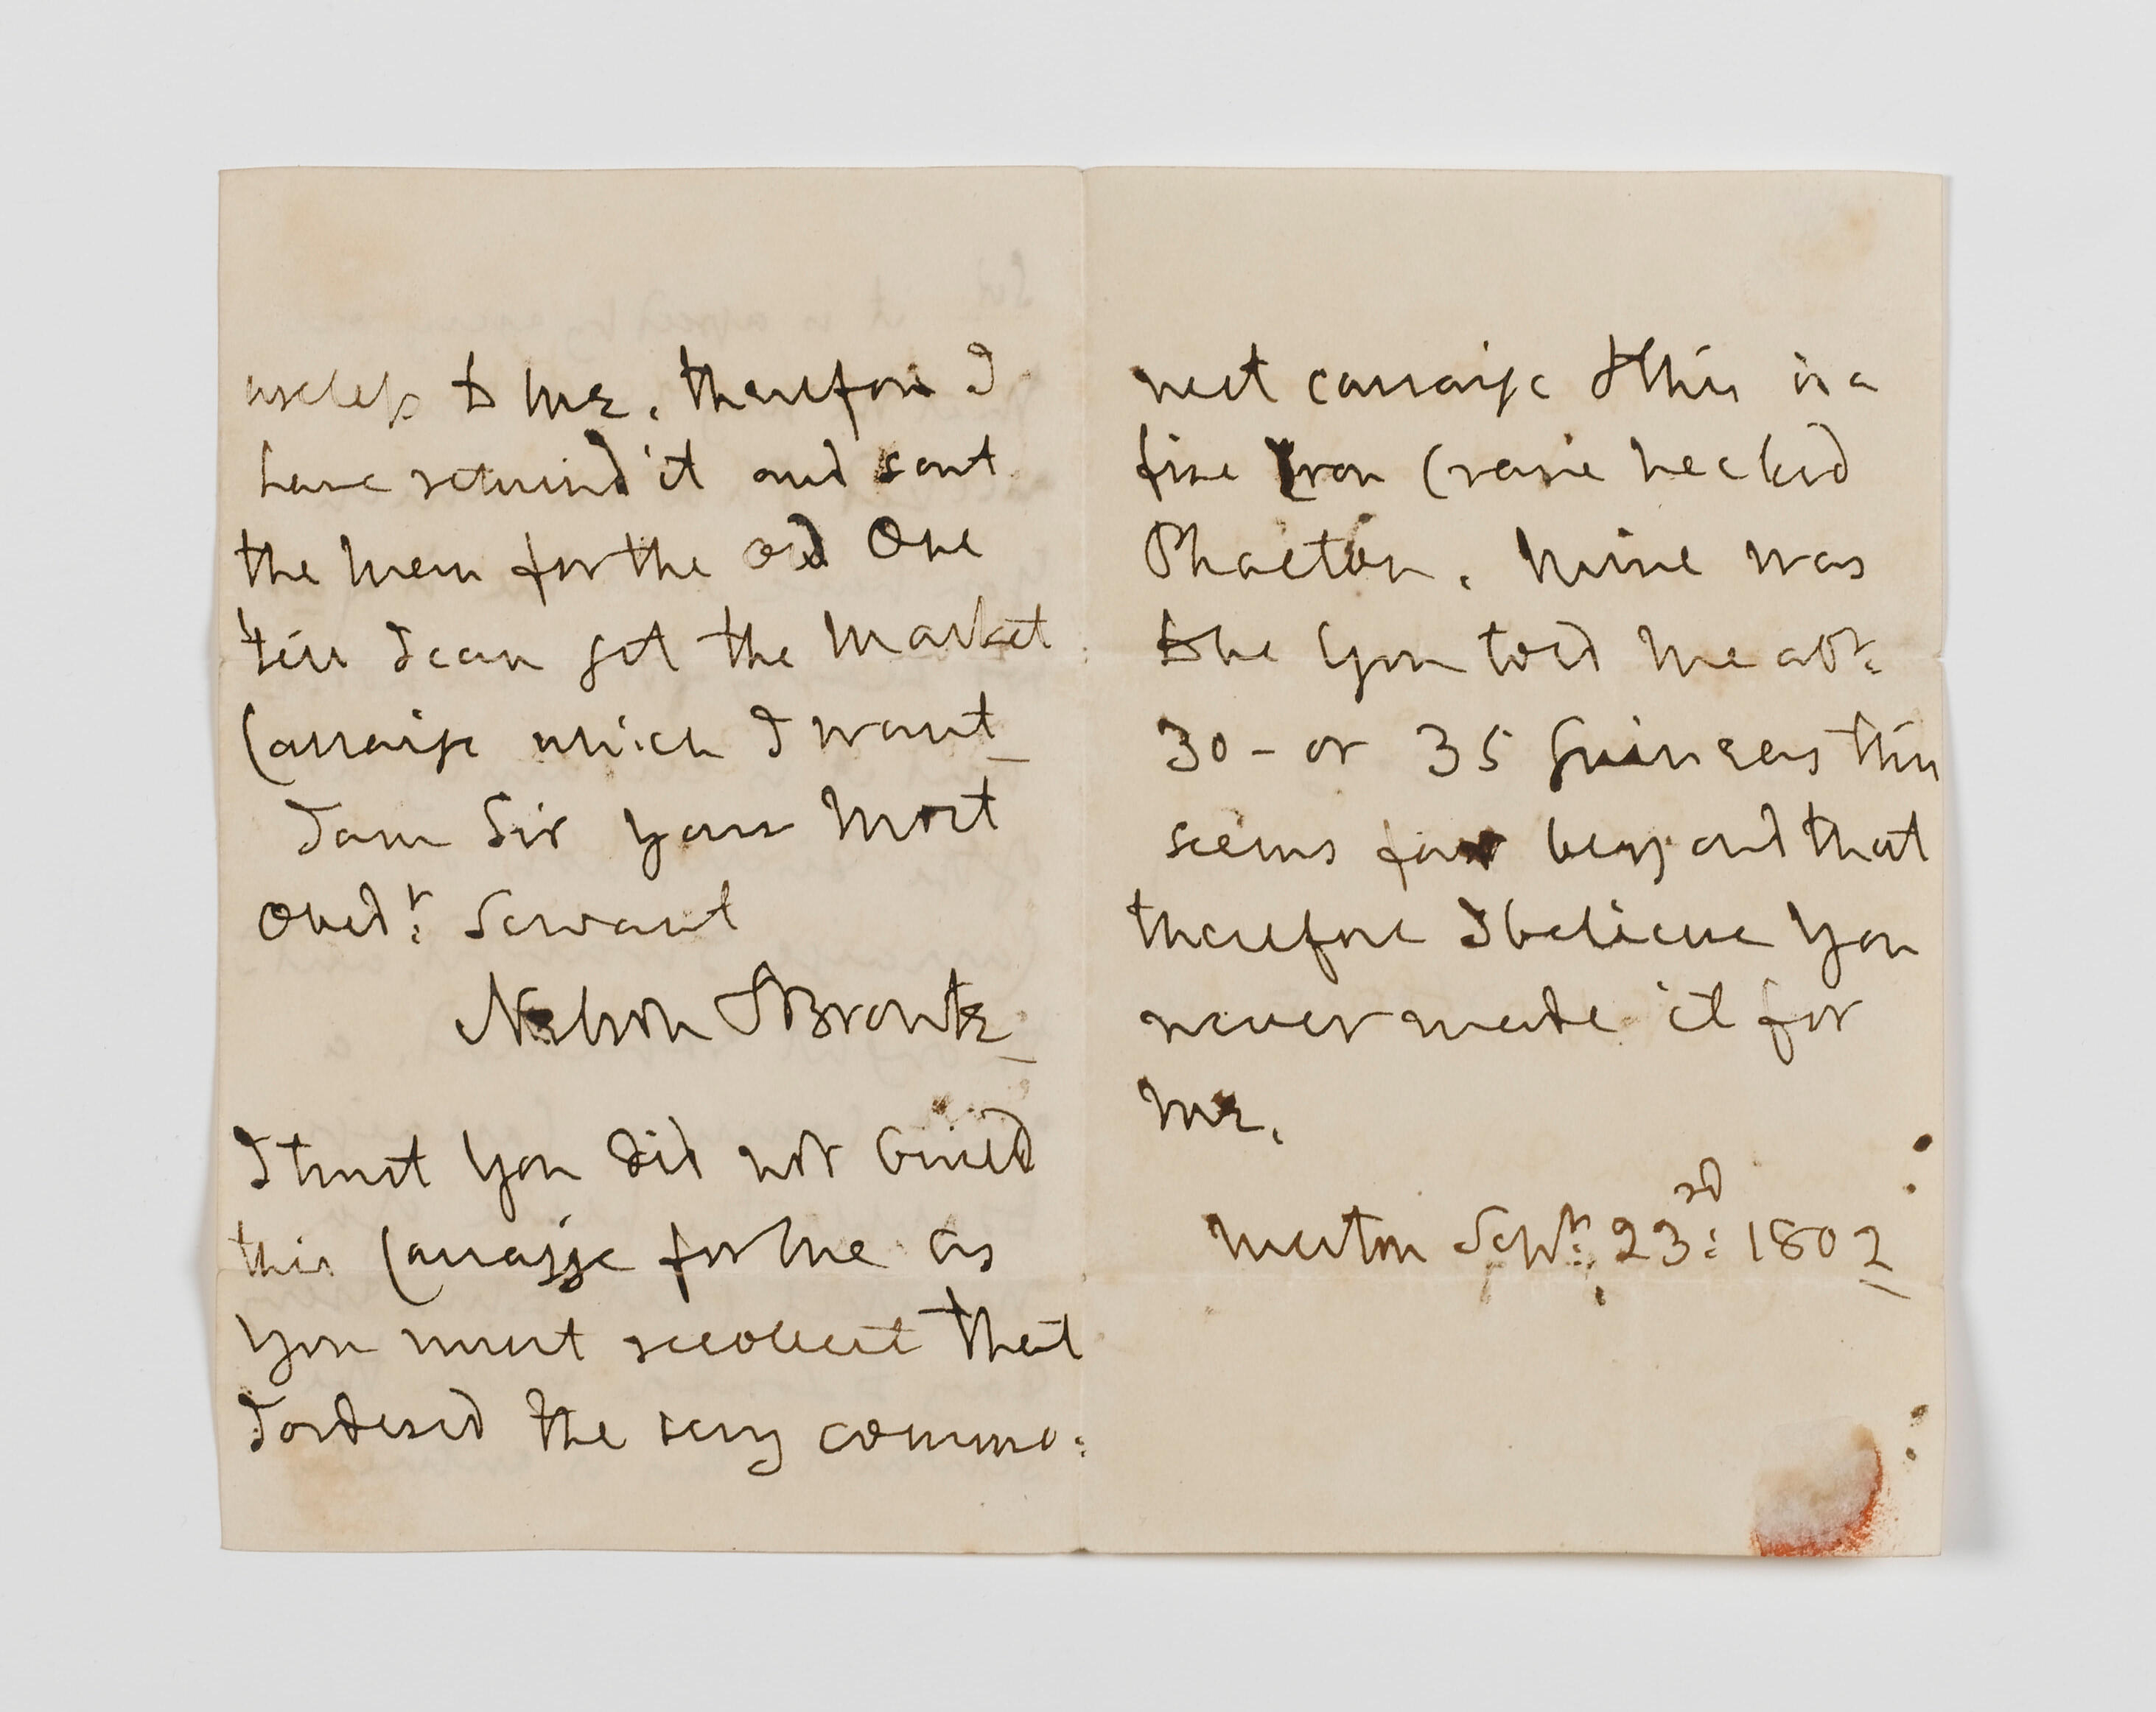 useless to me, therefore I
have returned it and sent
the men for the old One
till I can get the Market
Carraige which I want_
I am Sir Your Most
Obedt: Servant
Nelson & Bronte_
I trust You did not build
this Carraige for me as
You must recollect that
I ordered the very commo:
nest carraige & this is a
fine Iron Crane necked
Phaeton. Mine was
to be You told me abt:
30 - or 35 Guineas this
seems far beyond that
therefore I believe You
never made it for
Me.
Merton Sept: 23rd: 1802